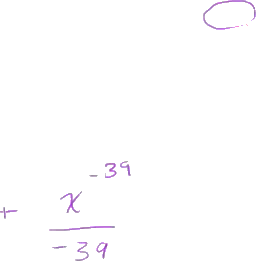 + x^{-39}/-39